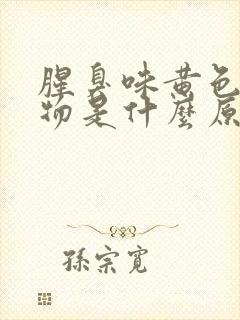 腥臭味黄色
物是什麼原
孫宗寬